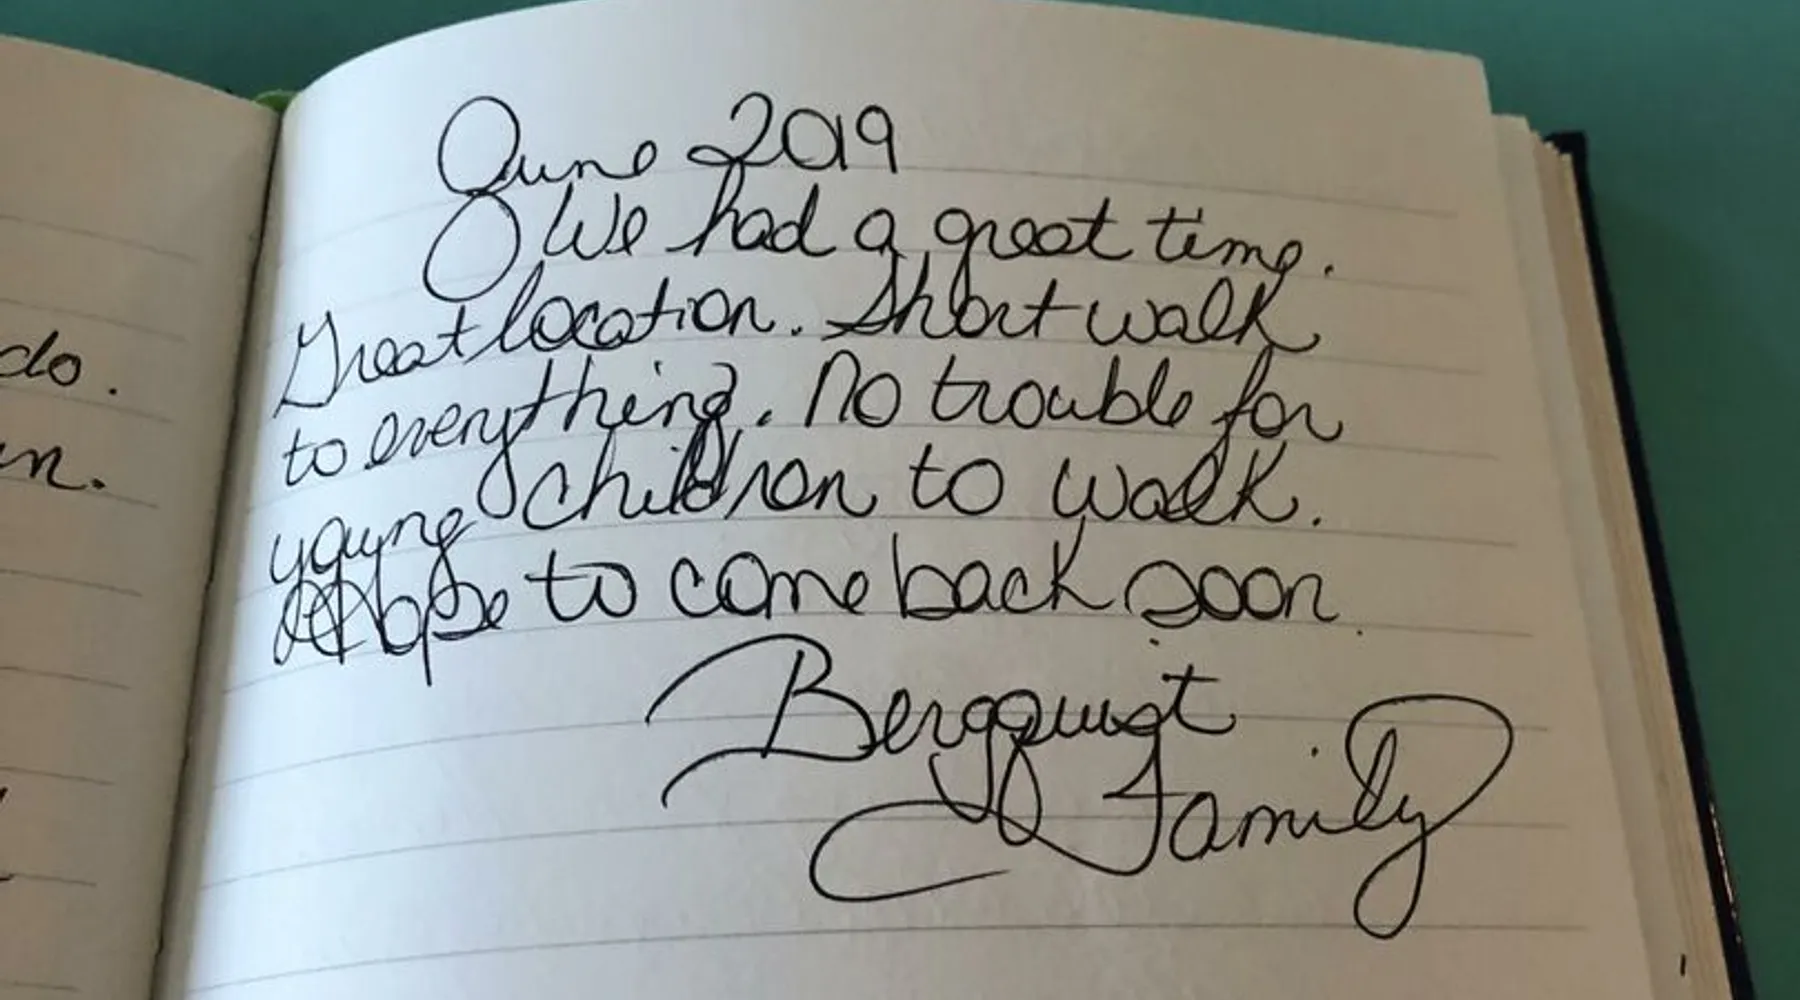 do.
n.
June 2019
We had a great time.
Great location. Short walk
to everything. No trouble for
young children to walk.
Hope to come back soon.
Bergquist
Family